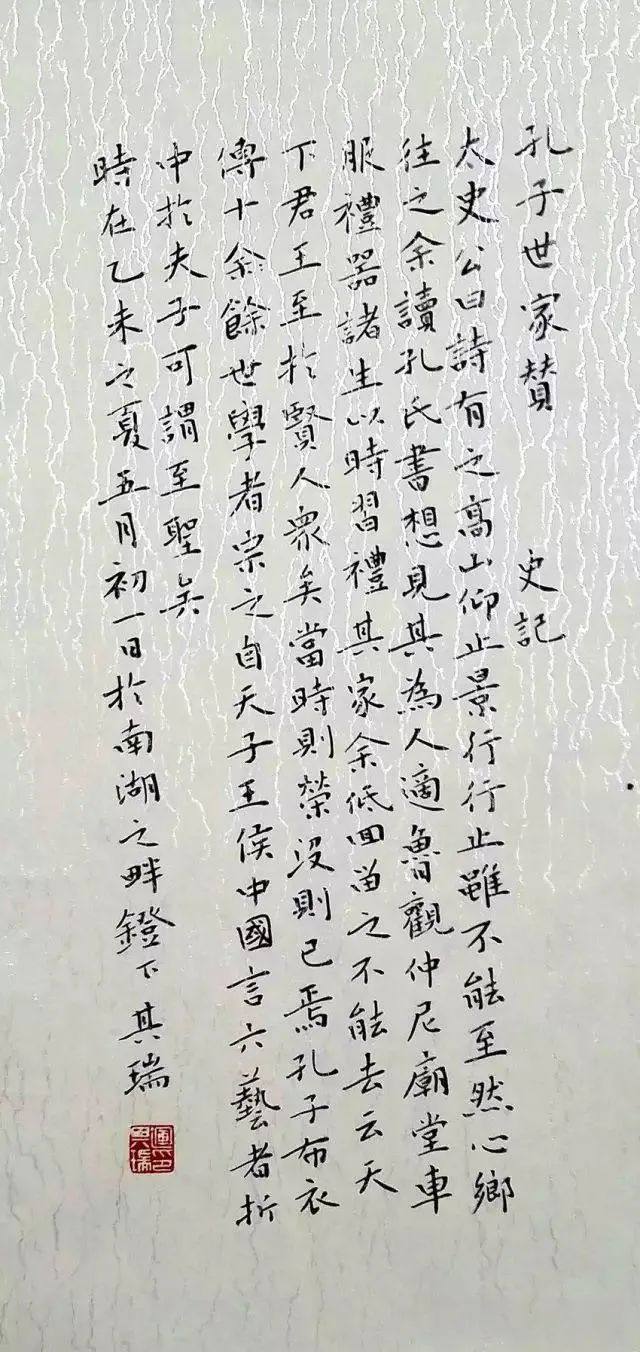 孔子世家赞 史記
太史公曰詩有之高山仰止景行行止雖不能至然心鄉
往之余讀孔氏書想見其為人適魯觀仲尼廟堂車
服禮器諸生以時習禮其家余低回留之不能去云天
下君王至於賢人衆矣當時則榮没則已焉孔子布衣
傳十余餘世學者宗之自天子王侯中國言六藝者折
中於夫子可謂至聖矣
時在乙未之夏五月初一日於南湖之畔鐙下其瑞